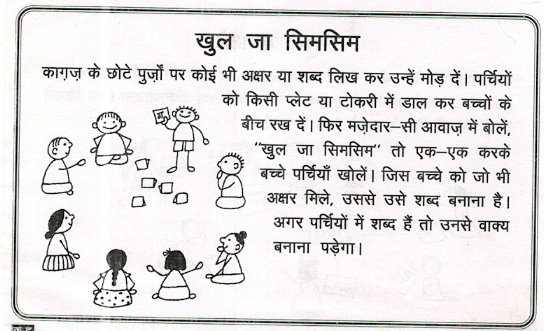 खुल जा सिमसिम
काग़ज़ के छोटे पुर्ज़ों पर कोई भी अक्षर या शब्द लिख कर उन्हें मोड़ दें। पर्चियों
को किसी प्लेट या टोकरी में डाल कर बच्चों के
बीच रख दें। फिर मज़ेदार–सी आवाज़ में बोलें,
"खुल जा सिमसिम" तो एक–एक करके
बच्चे पर्चियाँ खोलें। जिस बच्चे को जो भी
अक्षर मिले, उससे उसे शब्द बनाना है।
अगर पर्चियों में शब्द हैं तो उनसे वाक्य
बनाना पड़ेगा।